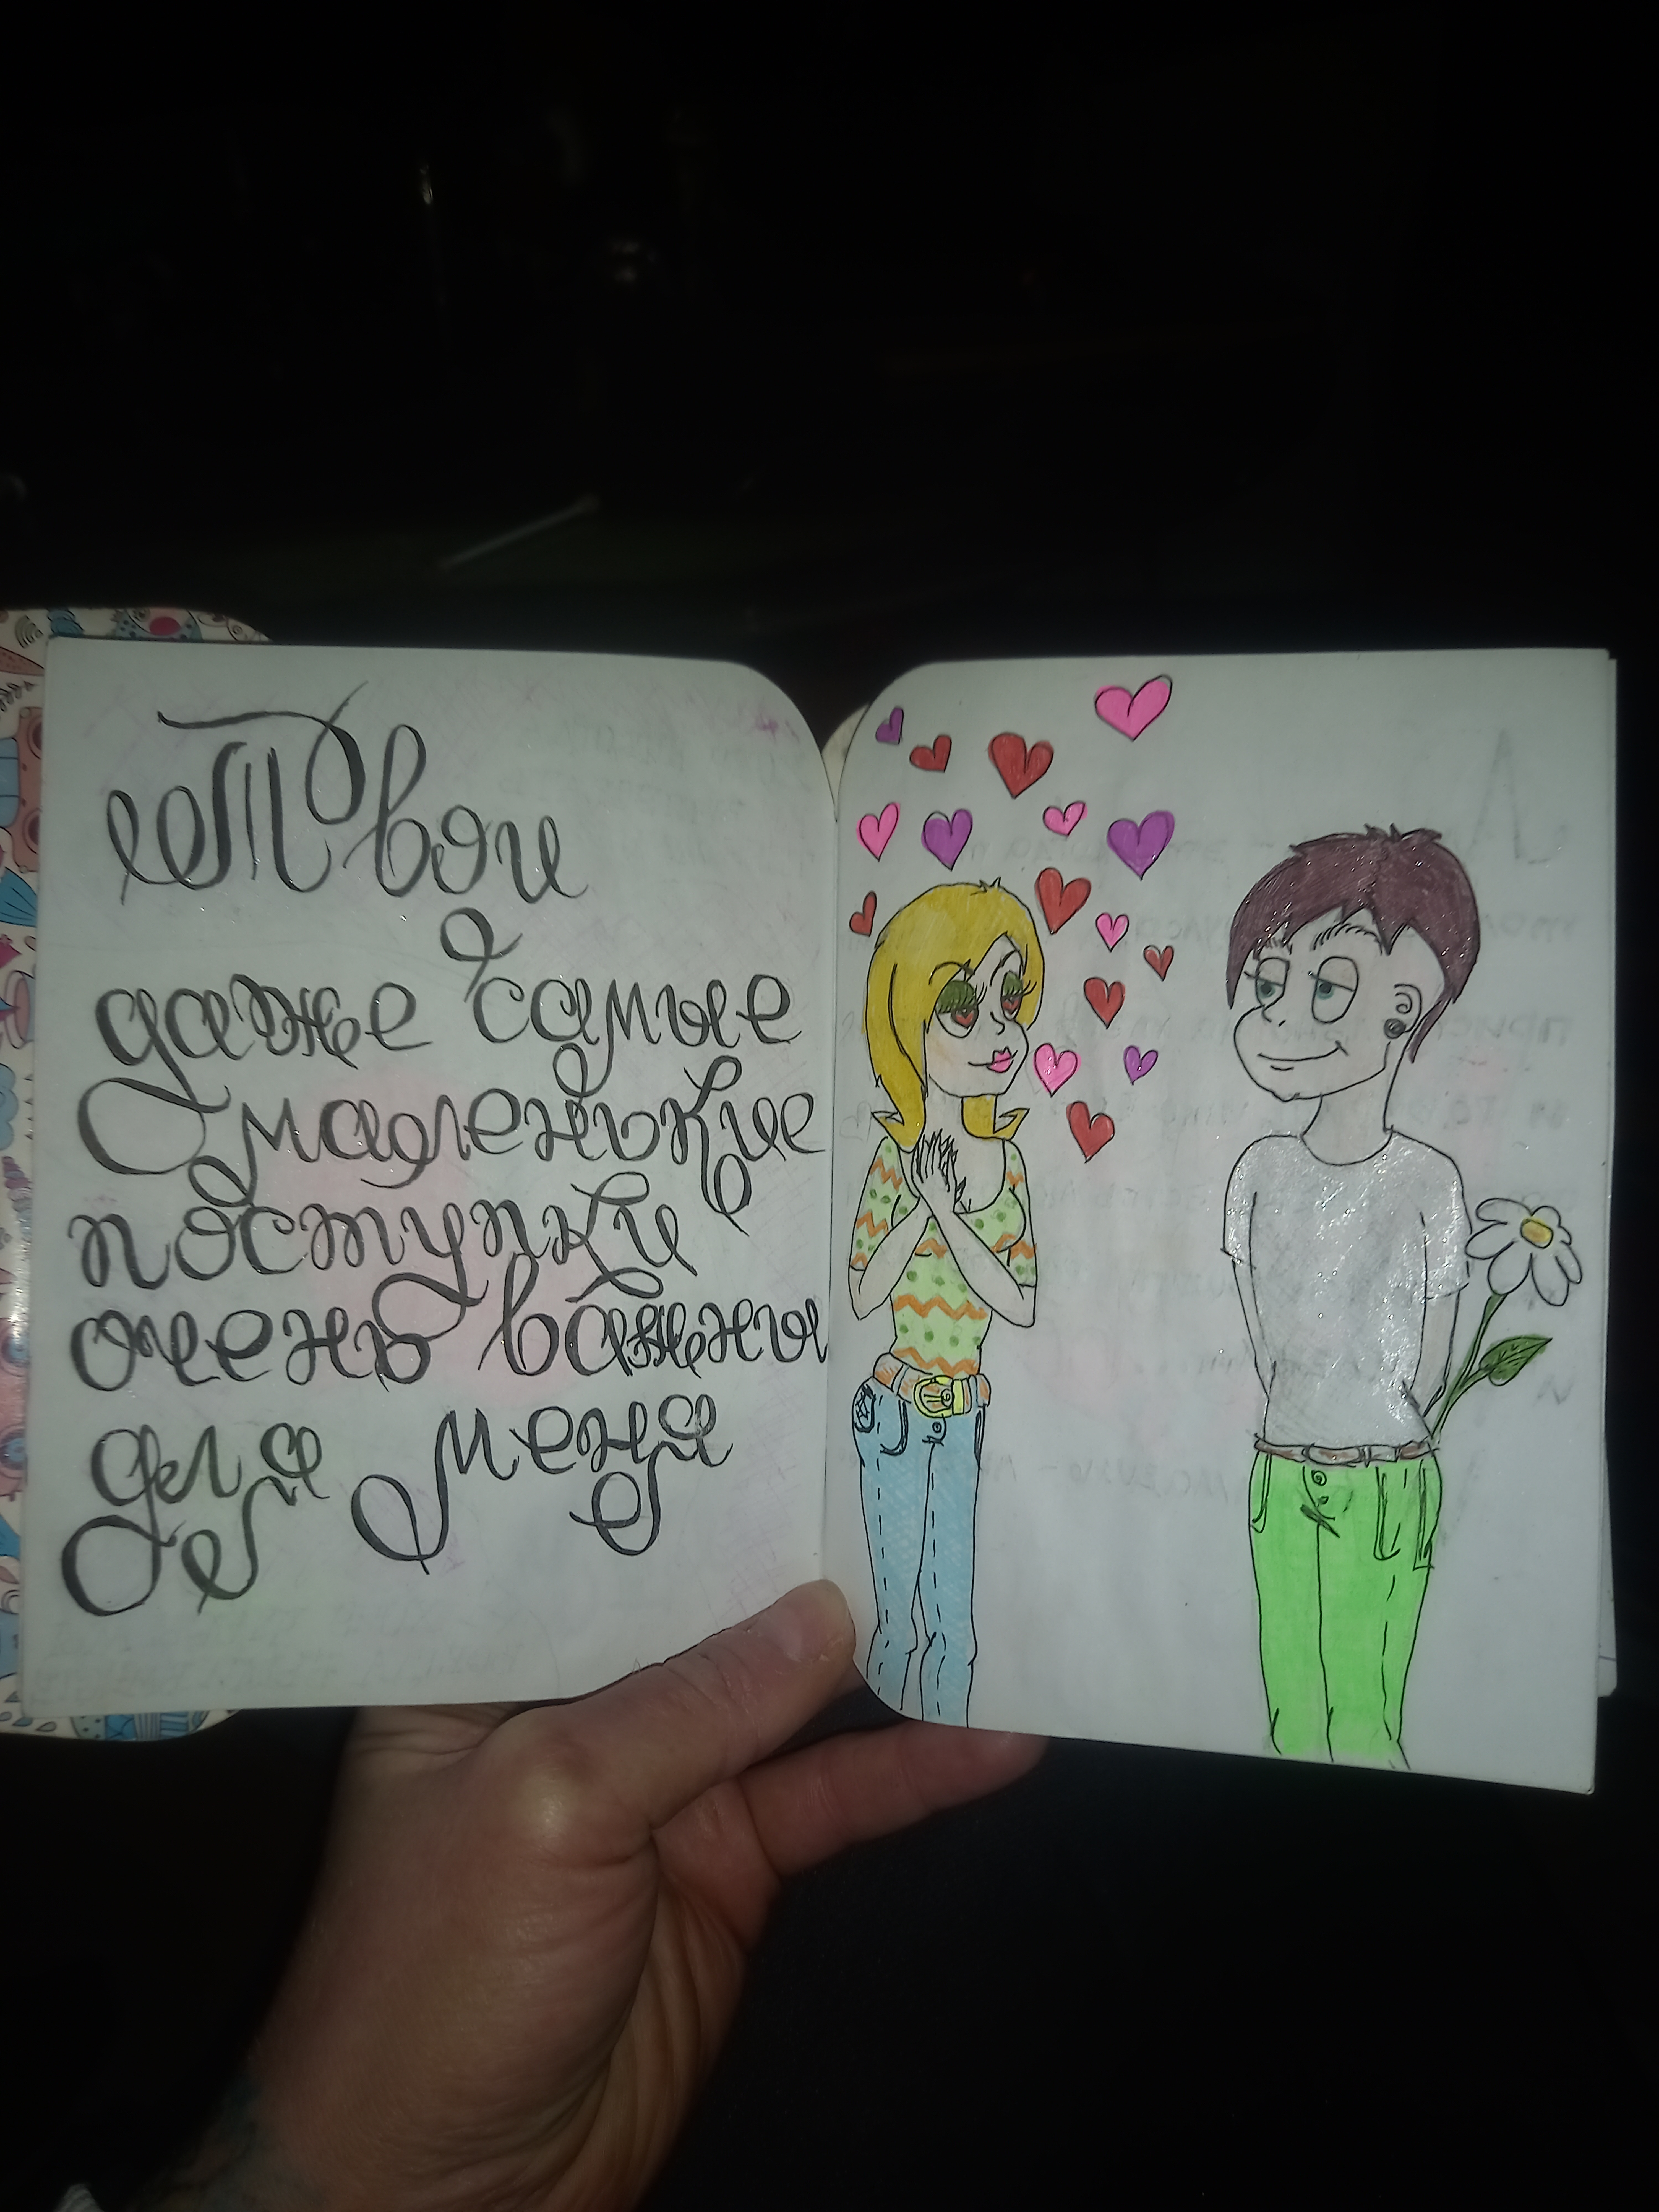 Твои
даже самые
маленькие
поступки
очень важны
для меня